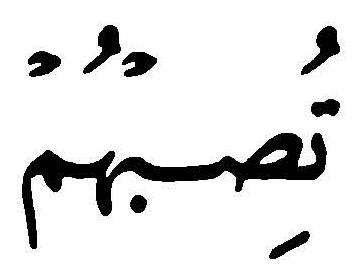 تُصِبْهُمْ